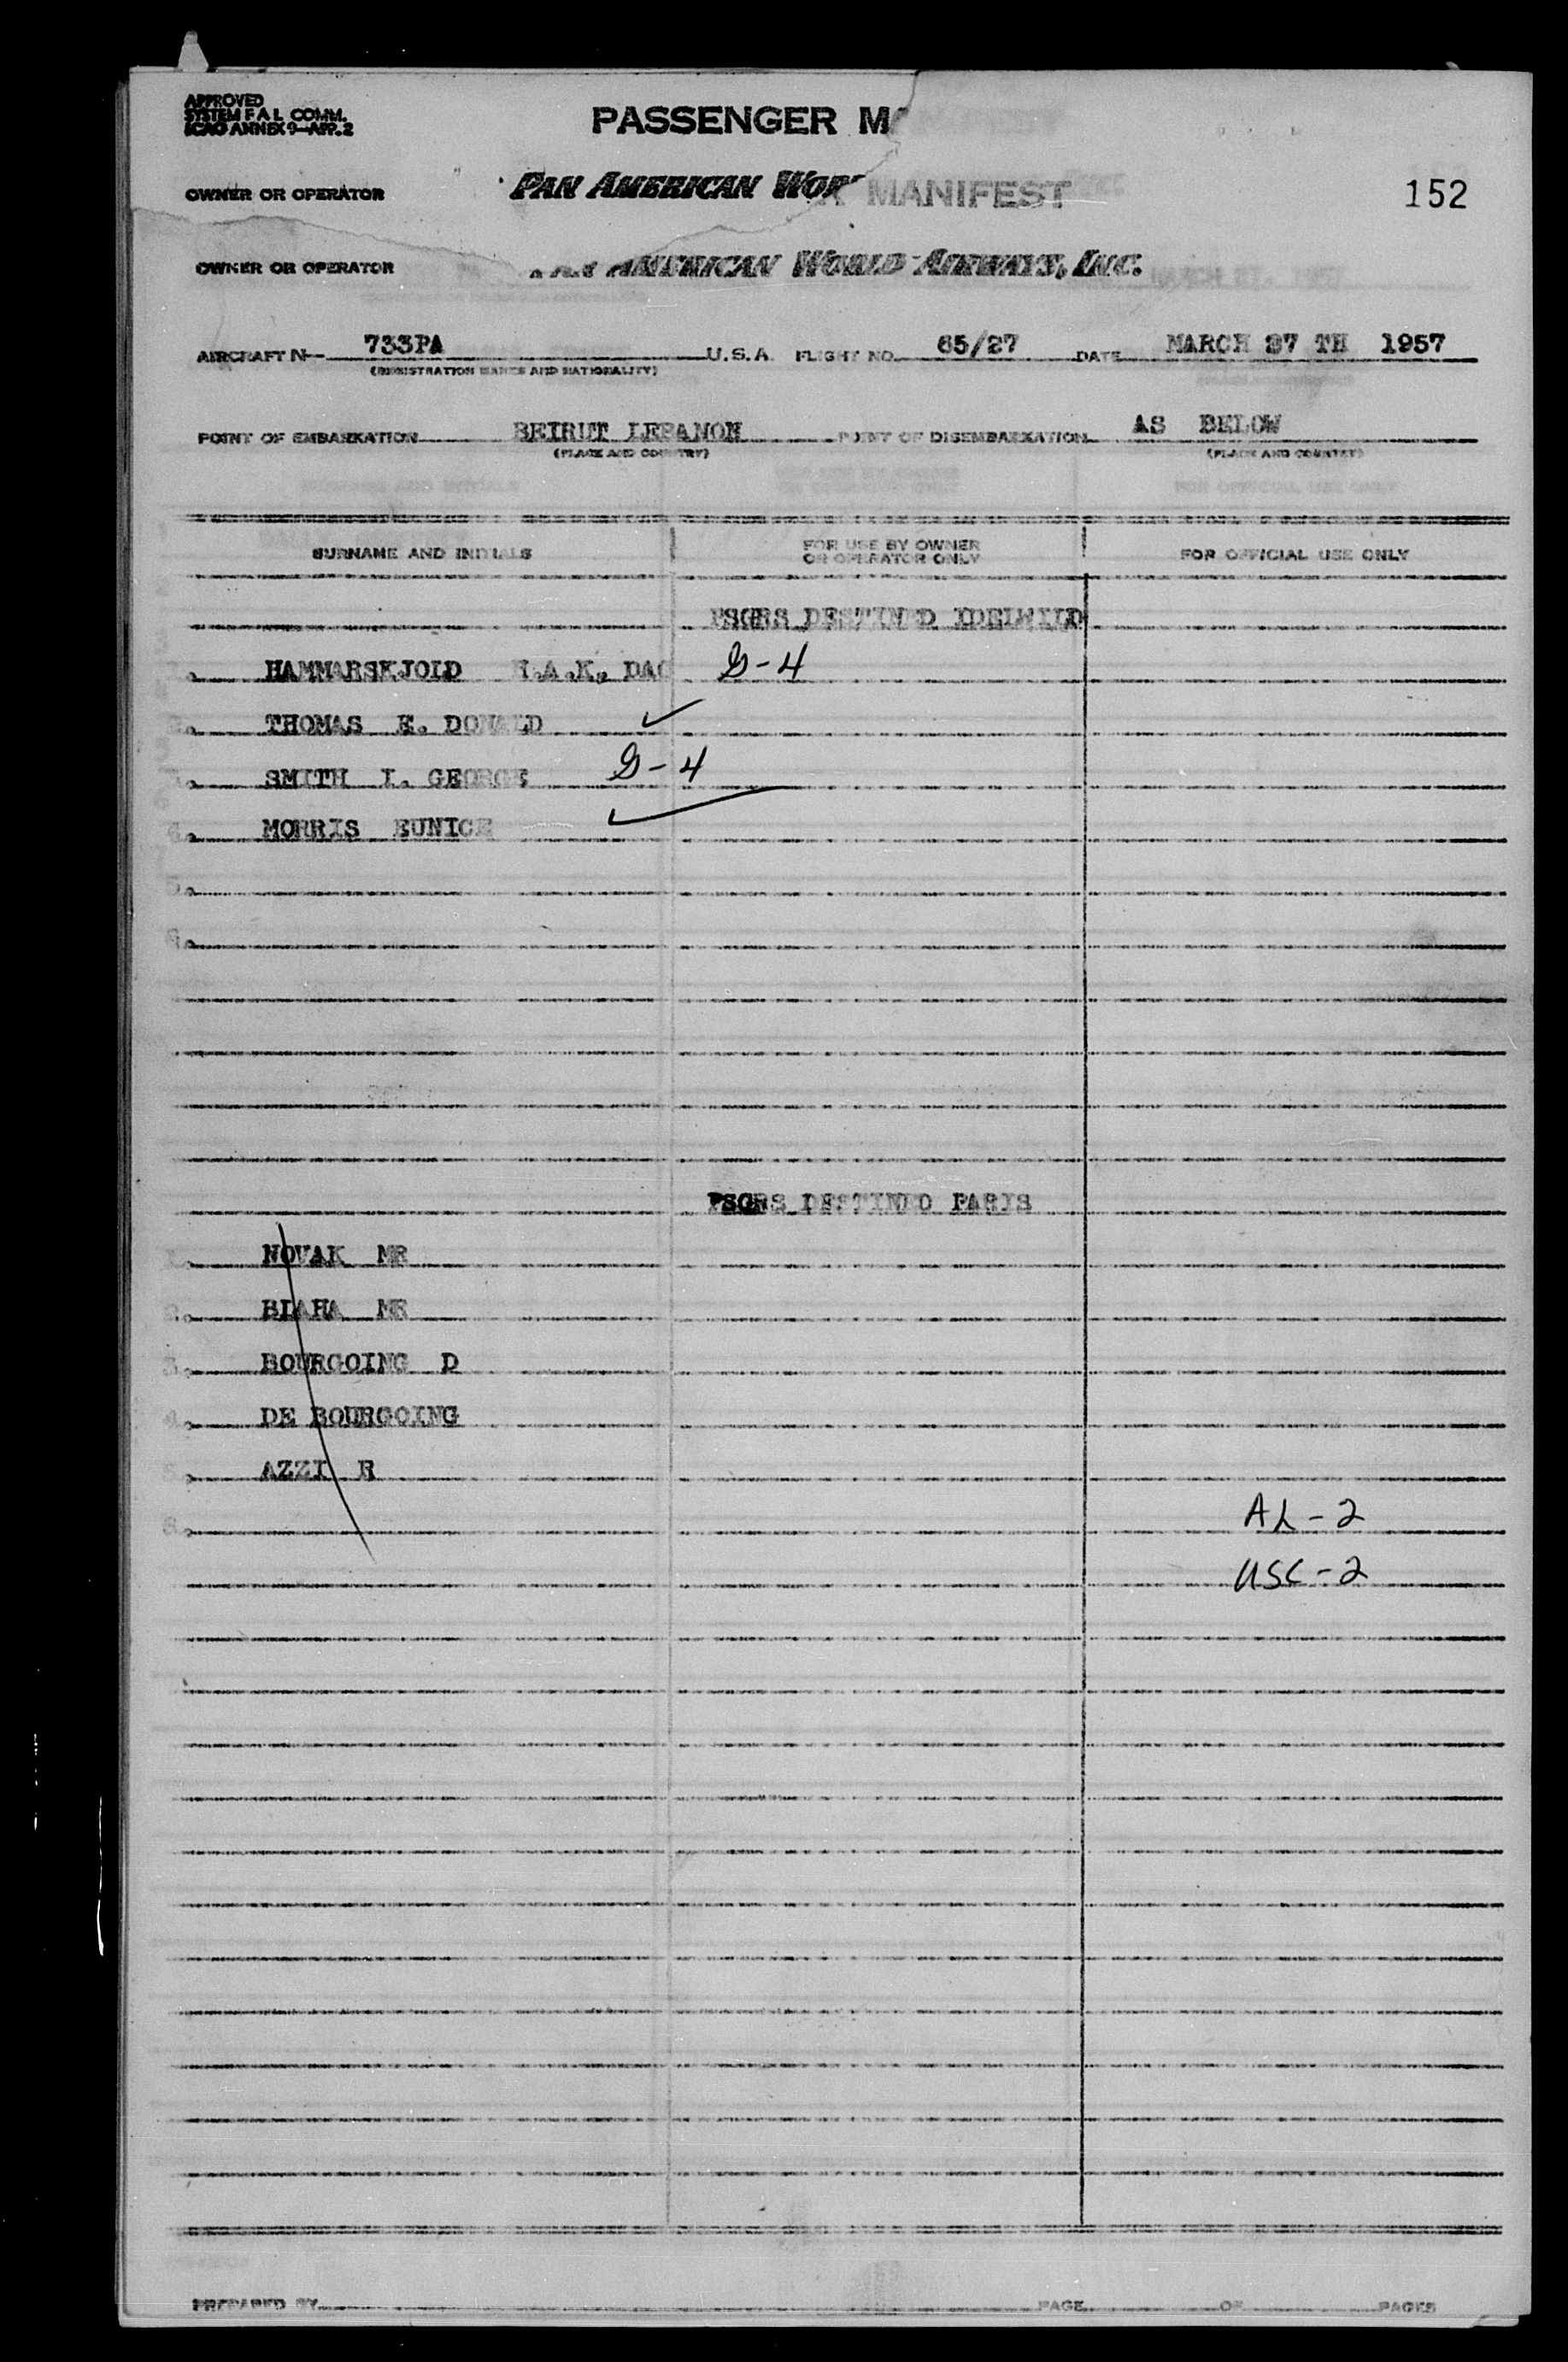 APPROVED
SYSTEM F A L COMM.
ICAO ANNEX 9-APP. 2
PASSENGER MA
OWNER OR OPERATOR PAN AMERICAN WOR
MANIFEST
152
OWNER OR OPERATOR PAN AMERICAN WORLD AIRWAYS, INC.
AIRCRAFT N- 733PA U.S.A. FLIGHT NO. 65/27 DATE MARCH 27 TH 1957
(REGISTRATION MARKS AND NATIONALITY)
POINT OF EMBARKATION BEIRUT LEBANON POINT OF DISEMBARKATION AS BELOW
(PLACE AND COUNTRY) (PLACE AND COUNTRY)
SURNAME AND INITIALS FOR USE BY OWNER OR OPERATOR ONLY FOR OFFICIAL USE ONLY
PSGRS DESTINED IDELWILD
HAMMARSKJOLD H.A.K. DAG G-4
2. THOMAS E. DONALD ✓
3. SMITH I. GEORGE G-4
4. MORRIS EUNICE ✓
5.
6.
PSGRS DESTINED PARIS
1. NOVAK MR
2. BLAHA MR
3. BOURGOING D
4. DE BOURGOING
5. AZZI R
6. AL-2
USC-2
PREPARED BY PAGE OF PAGES